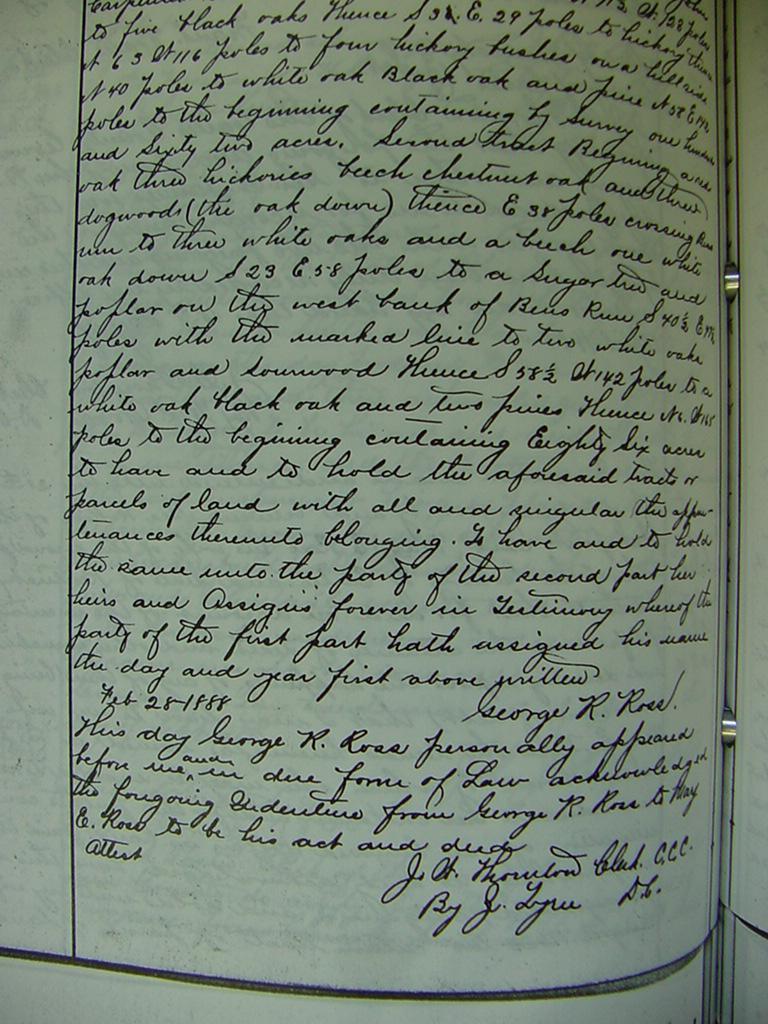 to five black oaks thence S 32 E. 29 poles to hickory
N 63 W 116 poles to four hickory bushes on a hill side
N 40 poles to white oak Black oak and pine N 58 E
poles to the beginning containing by survey one hundred
and Sixty two acres. Second tract Begining a
oak three hickories beech chestnut oak and three
dogwoods (the oak down) thence E 38 poles crossing
run to three white oaks and a beech one white
oak down S 23 E 58 poles to a Sugar tree and
poplar on the west bank of Bens Run S 40½ E
poles with the marked line to two white oaks
poplar and sourwood thence S 58½ W 142 poles to a
white oak black oak and two pines thence N 6. W
poles to the begining containing Eighty Six acres
to have and to hold the aforesaid tracts or
parcels of land with all and singular the appur-
tenances thereunto belonging. To have and to hold
the same unto the party of the second part her
heirs and Assigns forever in Testimony whereof the
party of the first part hath assigned his name
the day and year first above written
George R. Ross.
Feb 28-1888
This day George R. Ross personally appeared
before me, and in due form of Law acknowledged
the foregoing Indenture from George R. Ross to May
E. Ross to be his act and deed
Attest
J. W. Thornton Clerk. C.C.C.
By J. D.C.